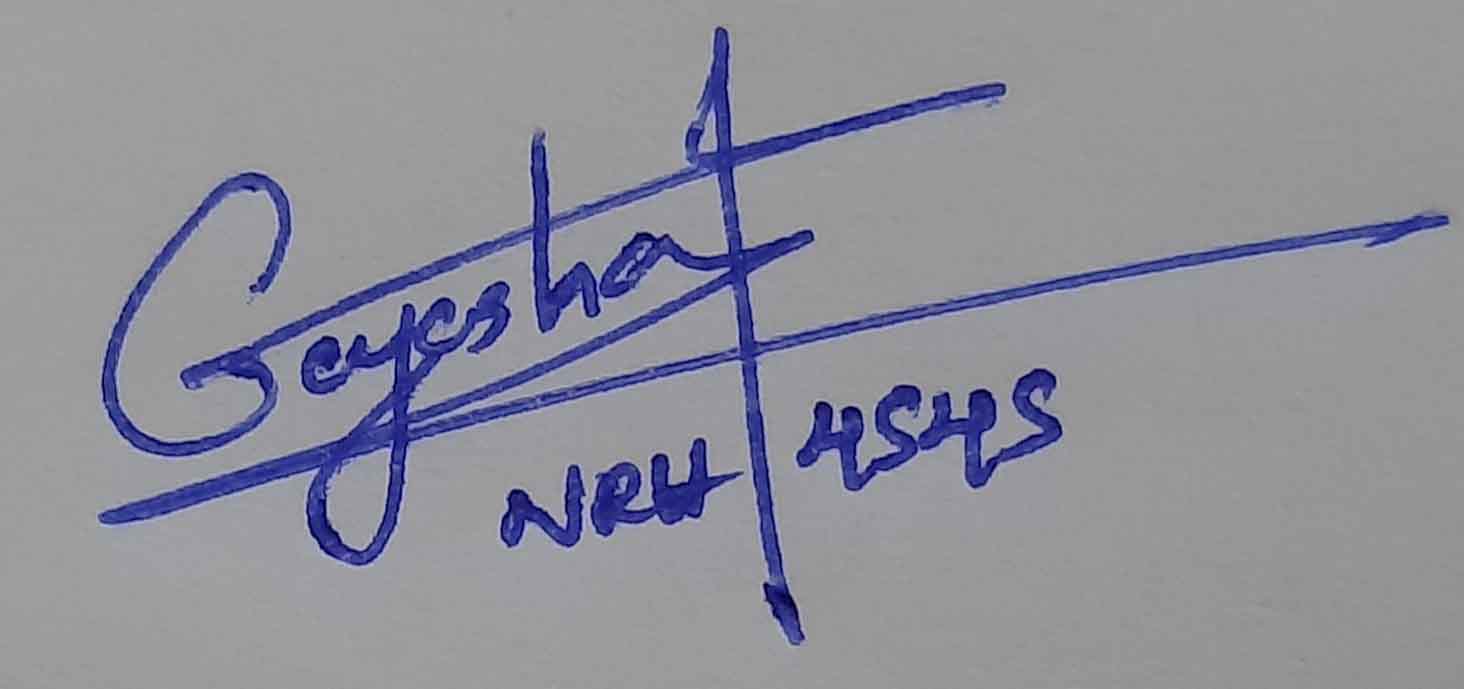 Geyesha
NRH 4545